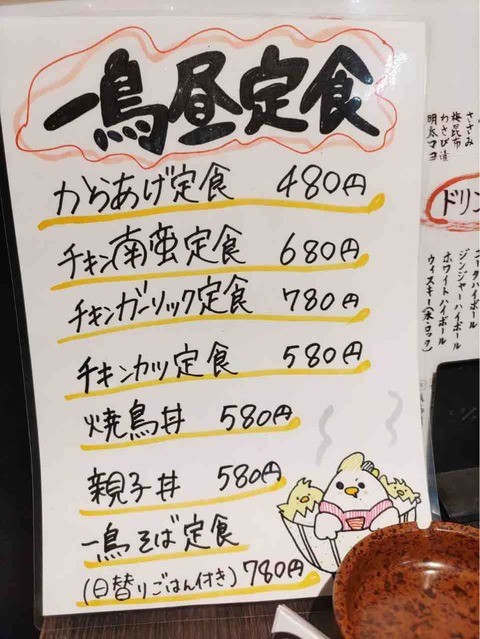 一鳥昼定食
からあげ定食 480円
チキン南蛮定食 680円
チキンガーリック定食 780円
チキンカツ定食 580円
焼鳥丼 580円
親子丼 580円
一鳥そば定食
(日替りごはん付き) 780円
ささみ
梅昆布
わさび漬
明太マヨ
ドリン
ジンジャーハイボール
ホワイトハイボール
ウィスキー(水・ロック)